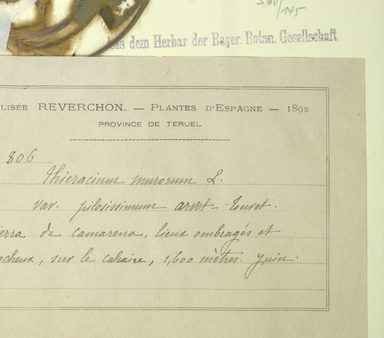 560/145
aus dem Herbar der Bayer. Botan. Gesellschaft
LISÉE REVERCHON. — PLANTES D'ESPAGNE — 1892
PROVINCE DE TERUEL
806
Hieracium murorum L.
var. pilosissimum arvet-Touvet.
ierra de camarena, lieux ombragés et
ocheux, sur le calcaire, 1,600 mètres. Juin.